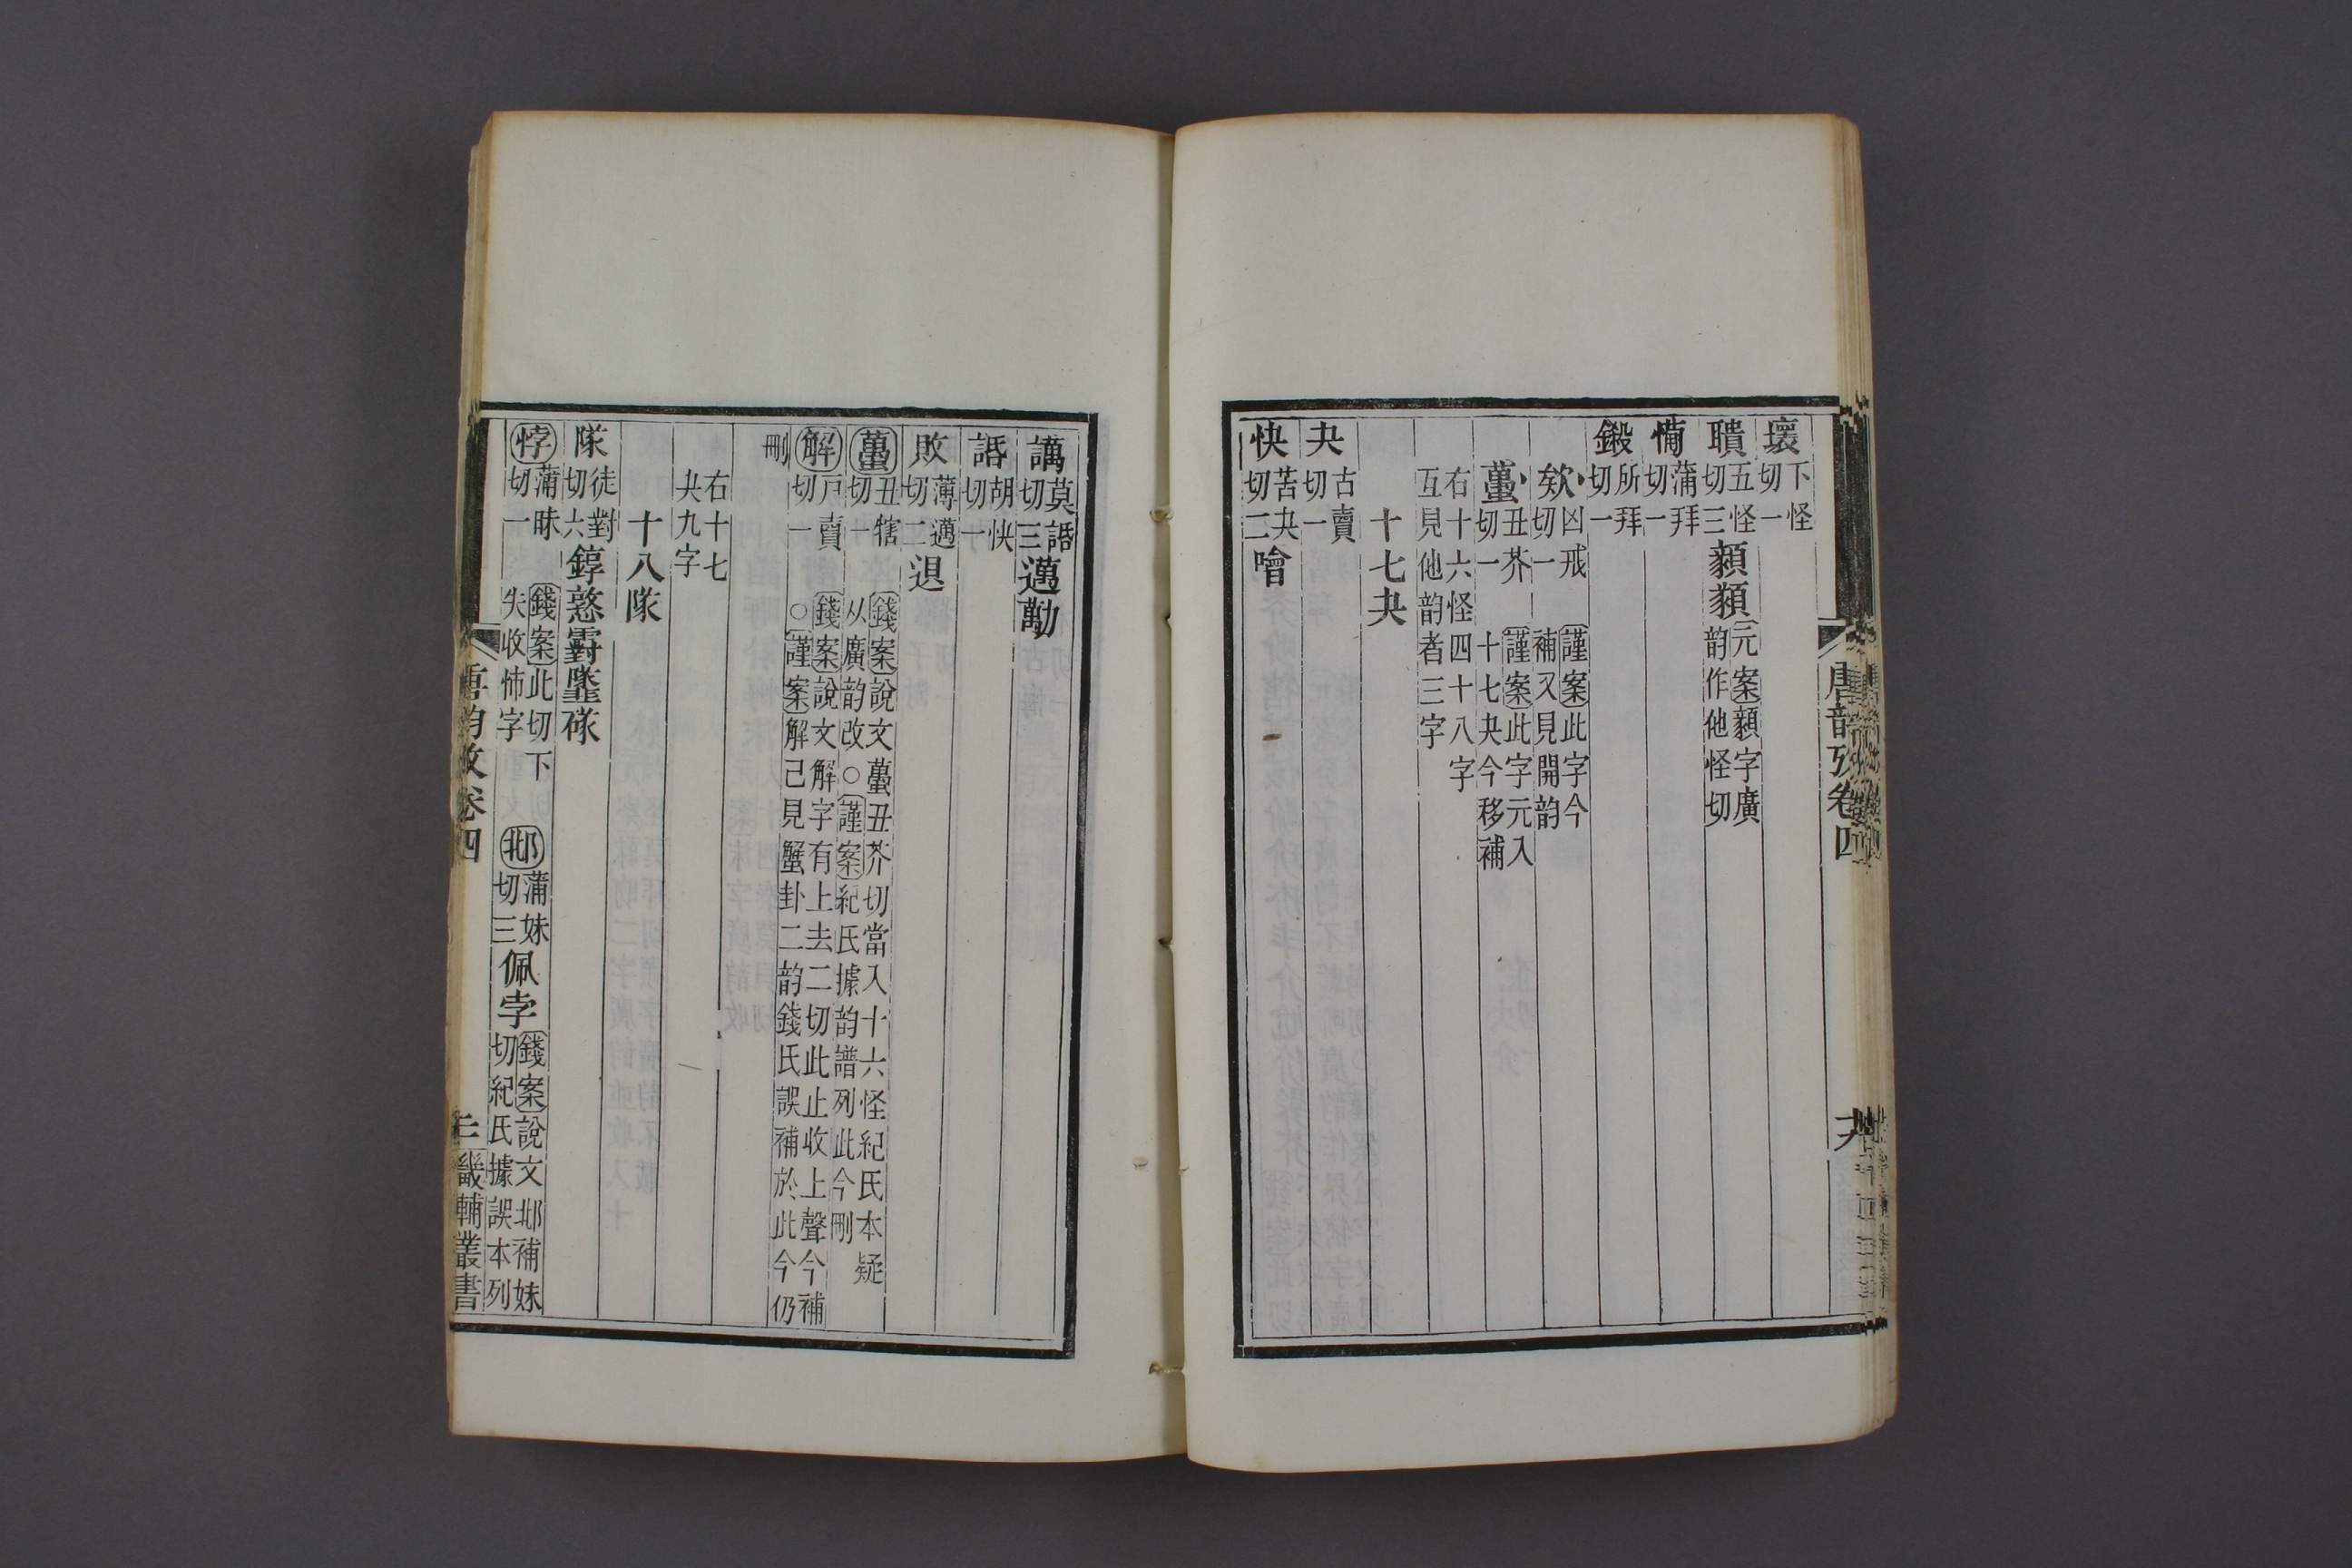 壞下怪切一
聵五怪切三䫥顡元案䫥字廣韵作他怪切
㣁蒲拜切一
鎩所拜切一
欸凶戒切一 謹案此字今補又見開韵
蠆丑芥切一 謹案此字元入十七夬今移補
右十六怪四十八字互見他韵者三字
十七夬
夬古賣切一
快苦夬切二噲
唐韵攷卷四
講莫話切三邁勱
話胡快切一
敗薄邁切二退
蠆丑犗切一 錢案說文蠆丑芥切當入十六怪紀氏本疑从廣韵改○謹案紀氏據韵譜列此今刪
解戸賣切一 錢案說文解字有上去二切此止收上聲今補○謹案解已見蟹卦二韵錢氏誤補於此今仍
刪
右十七夬九字
十八隊
隊徒對切六錞憝霩墜䃍
悖蒲昧切一 錢案此切下失收怖字 邶蒲妹切三佩孛錢案說文邶補妹切紀氏據誤本列
唐韵攷卷四
畿輔叢書